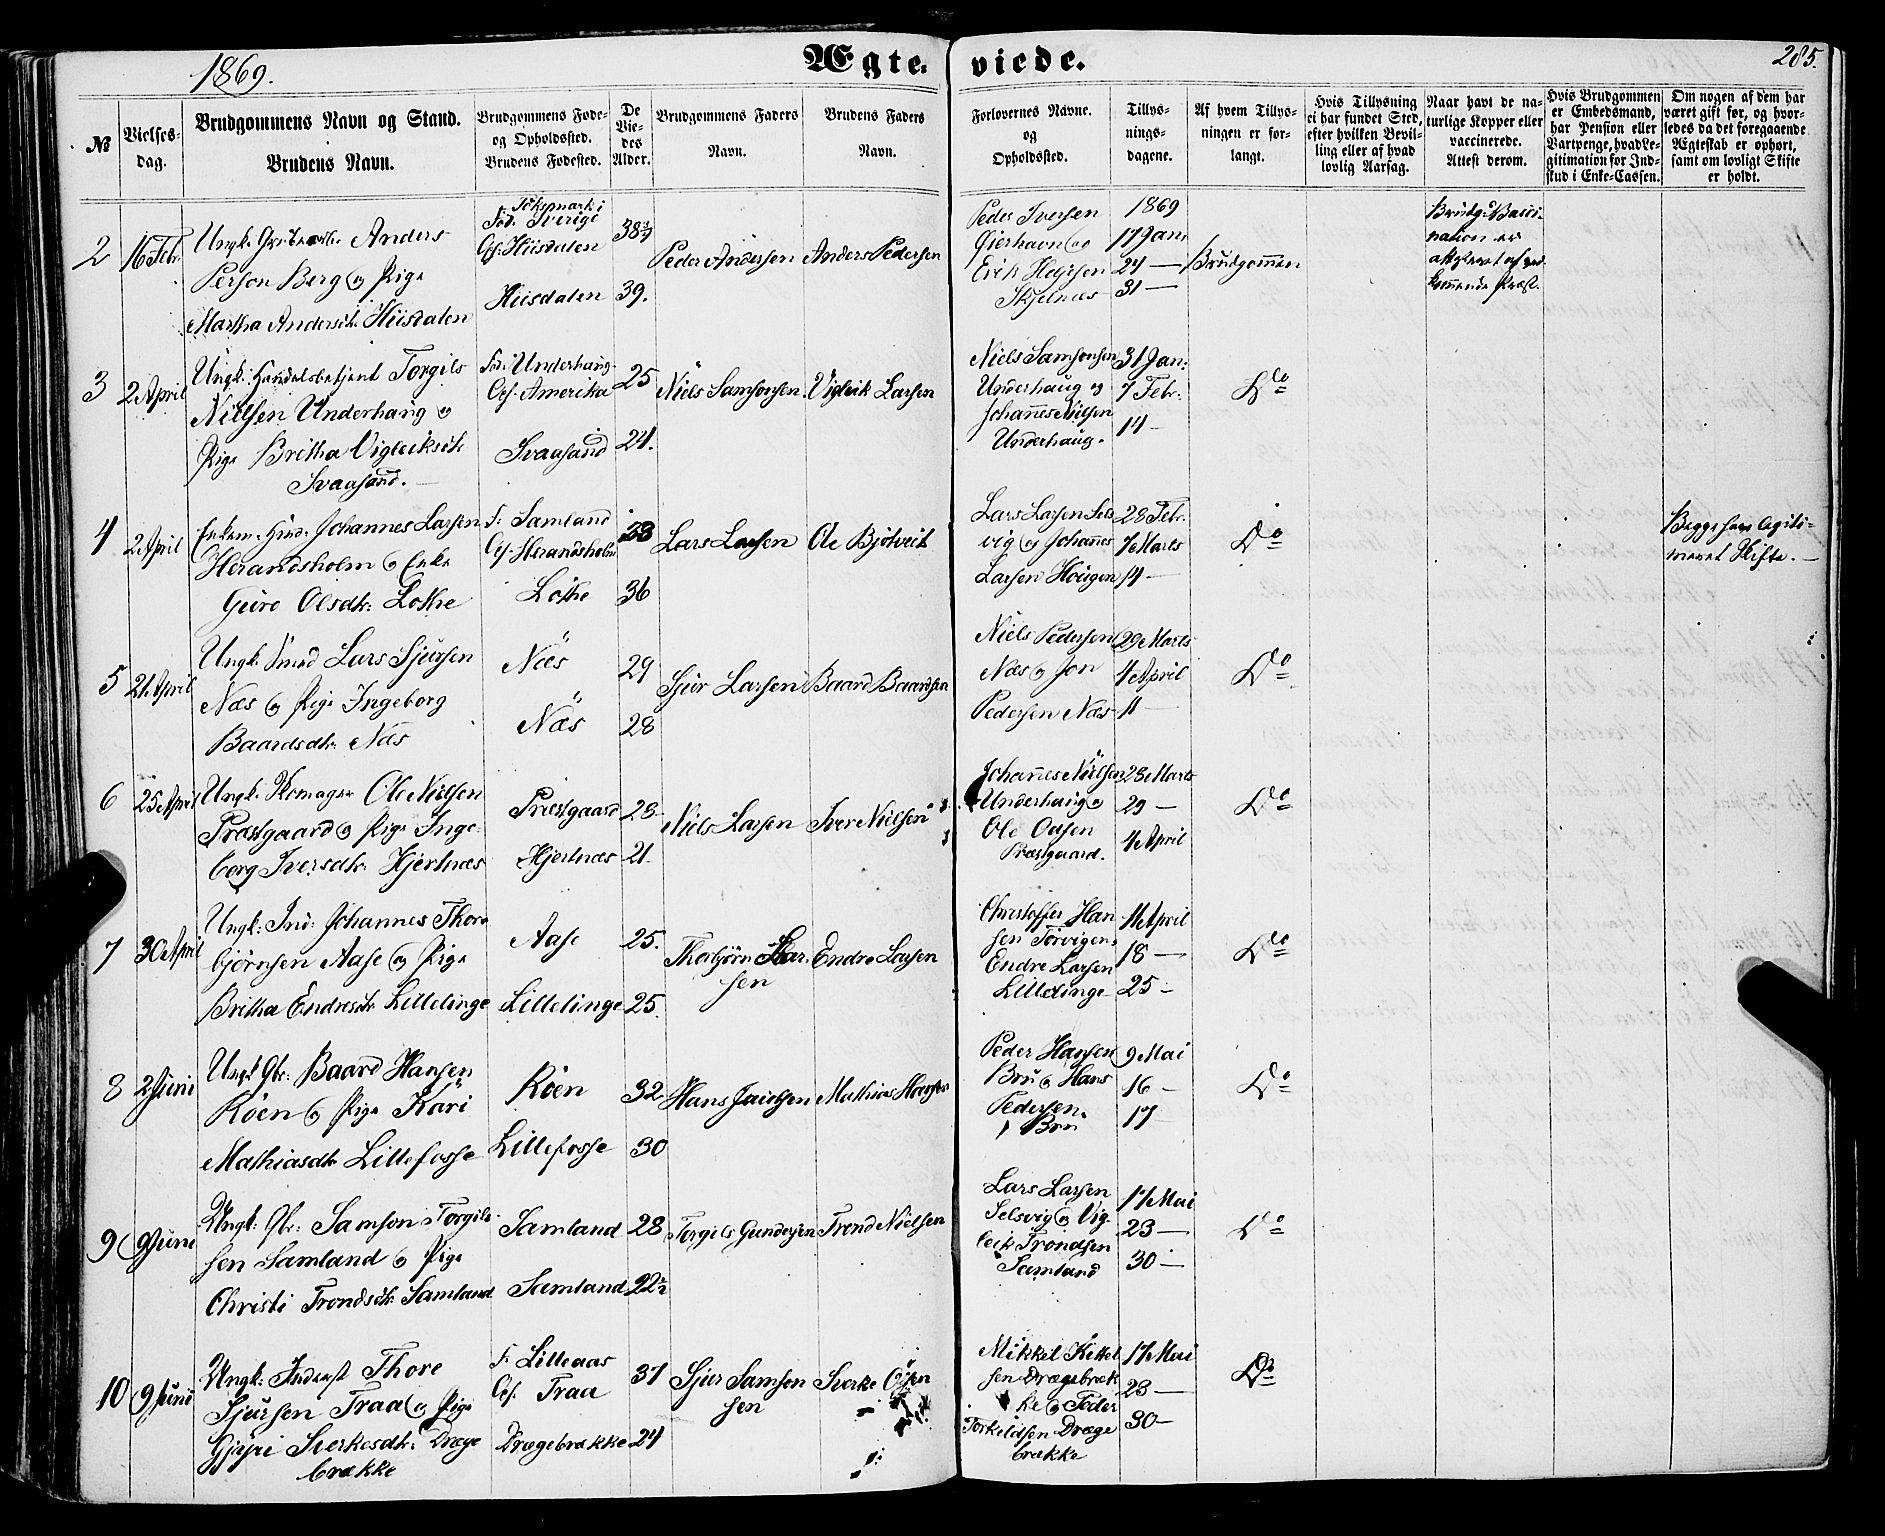 1869.
Ægte-
viede.
285.
№
Vielses-
dag.
Brudgommens Navn og Stand.
Brudens Navn.
Brudgommens Føde-
og Opholdssted.
Brudens Fødested.
De
Vie-
des
Alder.
Brudgommens Faders
Navn.
Brudens Faders
Navn.
Forlovernes Navne.
og
Opholdssted.
Tillys-
nings-
dagene.
Af hvem Tillys-
ningen er for-
langt.
Hvis Tillysning
ei har fundet Sted,
efter hvilken Bevil-
ling eller af hvad
lovlig Aarsag.
Naar havt de na-
turlige Kopper eller
vaccinerede.
Attest derom.
Hvis Brudgommen
er Embedsmand,
har Pension eller
Vartpenge, hvad Le-
gitimation for Ind-
skud i Enke-Cassen.
Om nogen af dem har
været gift før, og hvor-
ledes da det foregaaende
Ægteskab er ophørt,
samt om lovligt Skifte
er holdt.
2
16 Febr.
Ungk. Anders
Person Berg og Pige
Martha Andersdtr. Hiisdalen
Fød. Sverige
Opf. Hiisdalen
Hiisdalen
38
39.
Peder Andersen
Anders Pedersen
Peder Iversen
Øierhavn og
Erik
Skjelnæs
1869
17 Jan.
24 —
31 —
Brudgommen
Brudg. Vacci-
nation er
attesteret af ved-
kommende Præst.
3
2 April
Ungk. Handelsbetjent Torgils
Nielsen Underhaug og
Pige Britha Vigleiksdtr.
Svaasand.
Fød. Underhaug
Opf. Amerika
Svaasand
25
24.
Niels Samsonsen.
Vigleik Larsen
Niels Samsonsen
Underhaug og
Johannes Nielsen
Underhaug.
31 Jan:
7 Febr:
14 —
Do
4
2 April
Enkem. Johannes Larsen
Herandsholm og Enke
Guro Olsdtr: Lothe
F: Samland
Opf. Herandsholm
Lothe
33
36
Lars Larsen
Ole Bjotveit
Lars Larsen Sels
vig og Johannes
Larsen Hougen
28 Febr.
7 Marts
14 —
Do
Begge have legiti-
meret Skifte. —
5
21 April
Ungk. Smed Lars Sjursen
Næs og Pige Ingeborg
Baardsdtr. Næs
Næs
Næs
29
28
Sjur Larsen
Baard Baardsen
Niels Pedersen
Næs og Jon
Pedersen Næs
29 Marts
4 April
11 —
Do
6
25 April
Ungk. Skomager Ole Nielsen
Præstgaard og Pige Inge-
borg Iversdtr. Hjertnæs
Præstgaard
Hjertnæs
28
21.
Niels Larsen
Iver Nielsen
Johannes Nielsen
Underhaug og
Ole Olsen
Præstgaard.
28 Marts
29 —
4 April
Do
7
30 April
Ungk: Ind: Johannes Thor-
bjørnsen Aase og Pige
Britha Endresdtr. Lillelinge
Aase
Lillelinge
25.
25.
Thorbjørn Lar-
sen
Endre Larsen
Christoffer Han
sen Torvigen
Endre Larsen
Lillelinge
11 April
18 —
25 —
Do
8
2 Juni
Ungk. Gbr: Baard Hansen
Røen og Pige Kari
Mathiasdtr. Lillefosse
Røen
Lillefosse
32
30
Hans
Mathias
Peder Hansen
Bru og Hans
Pedersen
Bru
9 Mai
16 —
17 —
Do
9
9 Juni
Ungk: Gbr: Samson Torgils-
sen Samland og Pige
Christi Trondsdtr. Samland
Samland
Samland
28
22½
Torgils Gundersen
Trond Nielsen
Lars Larsen
Selsvig og Vig-
leik Trondsen
Samland
17 Mai
23 —
30 —
Do
10
9 Juni
Ungk: Inderst Thore
Sjursen Traa og Pige
Gjyri Sverkesdtr: Dræge
brække
F: Lilleaas
Opf. Traa
Drægebrække
31
24
Sjur Samson
sen
Sverke
Mikkel Kittel
sen Drægebræk
ke og Peder
Torkildsen Dræge
brække
17 Mai
23 —
30 —
Do